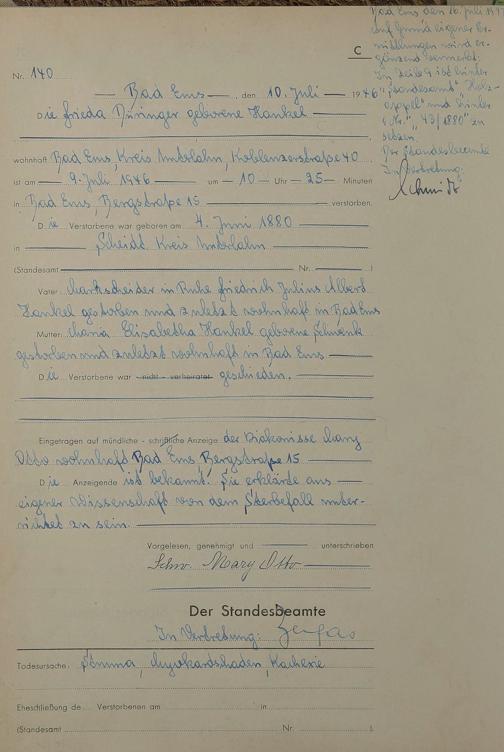 C
Bad Ems den 16. Juli 19
Auf Grund eigener Er-
mittlungen wird er-
gänzend vermerkt:
In Zeile 9 ist hinter
"Standesamt" "Holz-
appel" und hinter
"Nr." "43/1880" zu
setzen.
Der Standesbeamte
In Vertretung:
Schmidt
Nr. 140
Bad Ems, den 10. Juli 1946
Die Frieda Düringer geborene Hankel
wohnhaft Bad Ems, Kreis Unterlahn, Koblenzerstraße 40
ist am 9. Juli 1946 um 10 Uhr 25 Minuten
in Bad Ems, Bergstraße 15 verstorben.
Die Verstorbene war geboren am 4. Juni 1880
in Scheidt Kreis Unterlahn
(Standesamt Nr. )
Vater: Markscheider in Ruhe Friedrich Julius Albert
Hankel gestorben und zuletzt wohnhaft in Bad Ems
Mutter: Maria Elisabetha Hankel geborene Schwenk
gestorben und zuletzt wohnhaft in Bad Ems
Die Verstorbene war nicht verheiratet geschieden.
Eingetragen auf mündliche - schriftliche Anzeige der Diakonisse Mary
Otto wohnhaft Bad Ems Bergstraße 15
Die Anzeigende ist bekannt. Sie erklärte aus
eigener Wissenschaft von dem Sterbefall unter-
richtet zu sein.
Vorgelesen, genehmigt und unterschrieben
Schw. Mary Otto
Der Standesbeamte
In Vertretung:
Todesursache: Struma, Myokardschaden, Kachexie
Eheschließung de Verstorbenen am in
(Standesamt Nr. ).